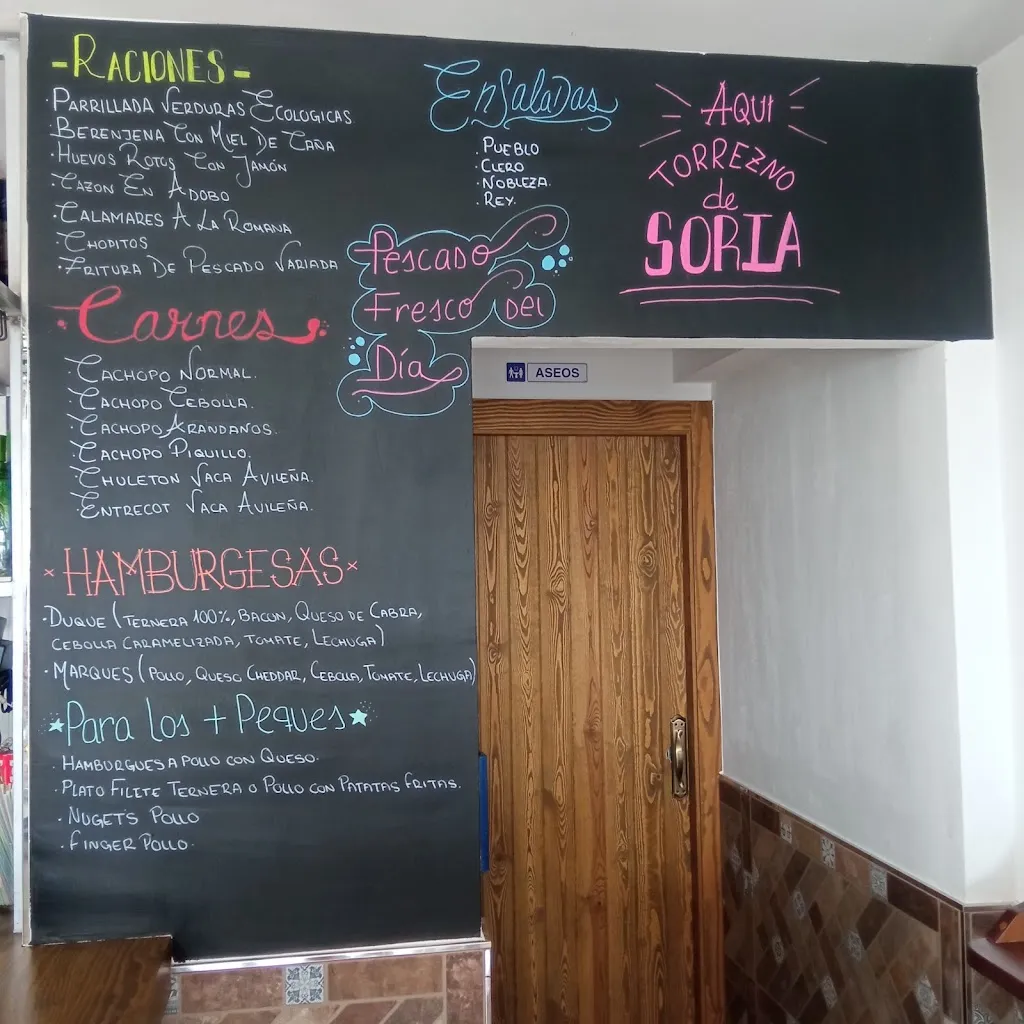 -RACIONES-
·PARRILLADA VERDURAS ECOLOGICAS
·BERENJENA CON MIEL DE CAÑA
·HUEVOS ROTOS CON JAMÓN
·CAZON EN ADOBO
·CALAMARES A LA ROMANA
·CHOPITOS
·FRITURA DE PESCADO VARIADA
·Carnes·
·CACHOPO NORMAL.
·CACHOPO CEBOLLA.
·CACHOPO ARANDANOS.
·CACHOPO PIQUILLO.
·CHULETON VACA AVILEÑA.
·ENTRECOT VACA AVILEÑA.
×HAMBURGESAS×
·DUQUE (TERNERA 100%, BACON, QUESO DE CABRA,
CEBOLLA CARAMELIZADA, TOMATE, LECHUGA)
·MARQUES (POLLO, QUESO CHEDDAR, CEBOLLA, TOMATE, LECHUGA)
★Para los + Peques★
·HAMBURGUESA POLLO CON QUESO.
·PLATO FILETE TERNERA O POLLO CON PATATAS FRITAS.
·NUGETS POLLO
·FINGER POLLO·
EnSalaDas
·PUEBLO
·CLERO
·NOBLEZA.
·REY.
PescaDo
Fresco Del
Día
AQUI
TORREZNO
de
SORIA
ASEOS